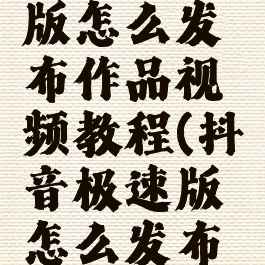 版怎么发
布作品视
频教程(抖
音极速版
怎么发布